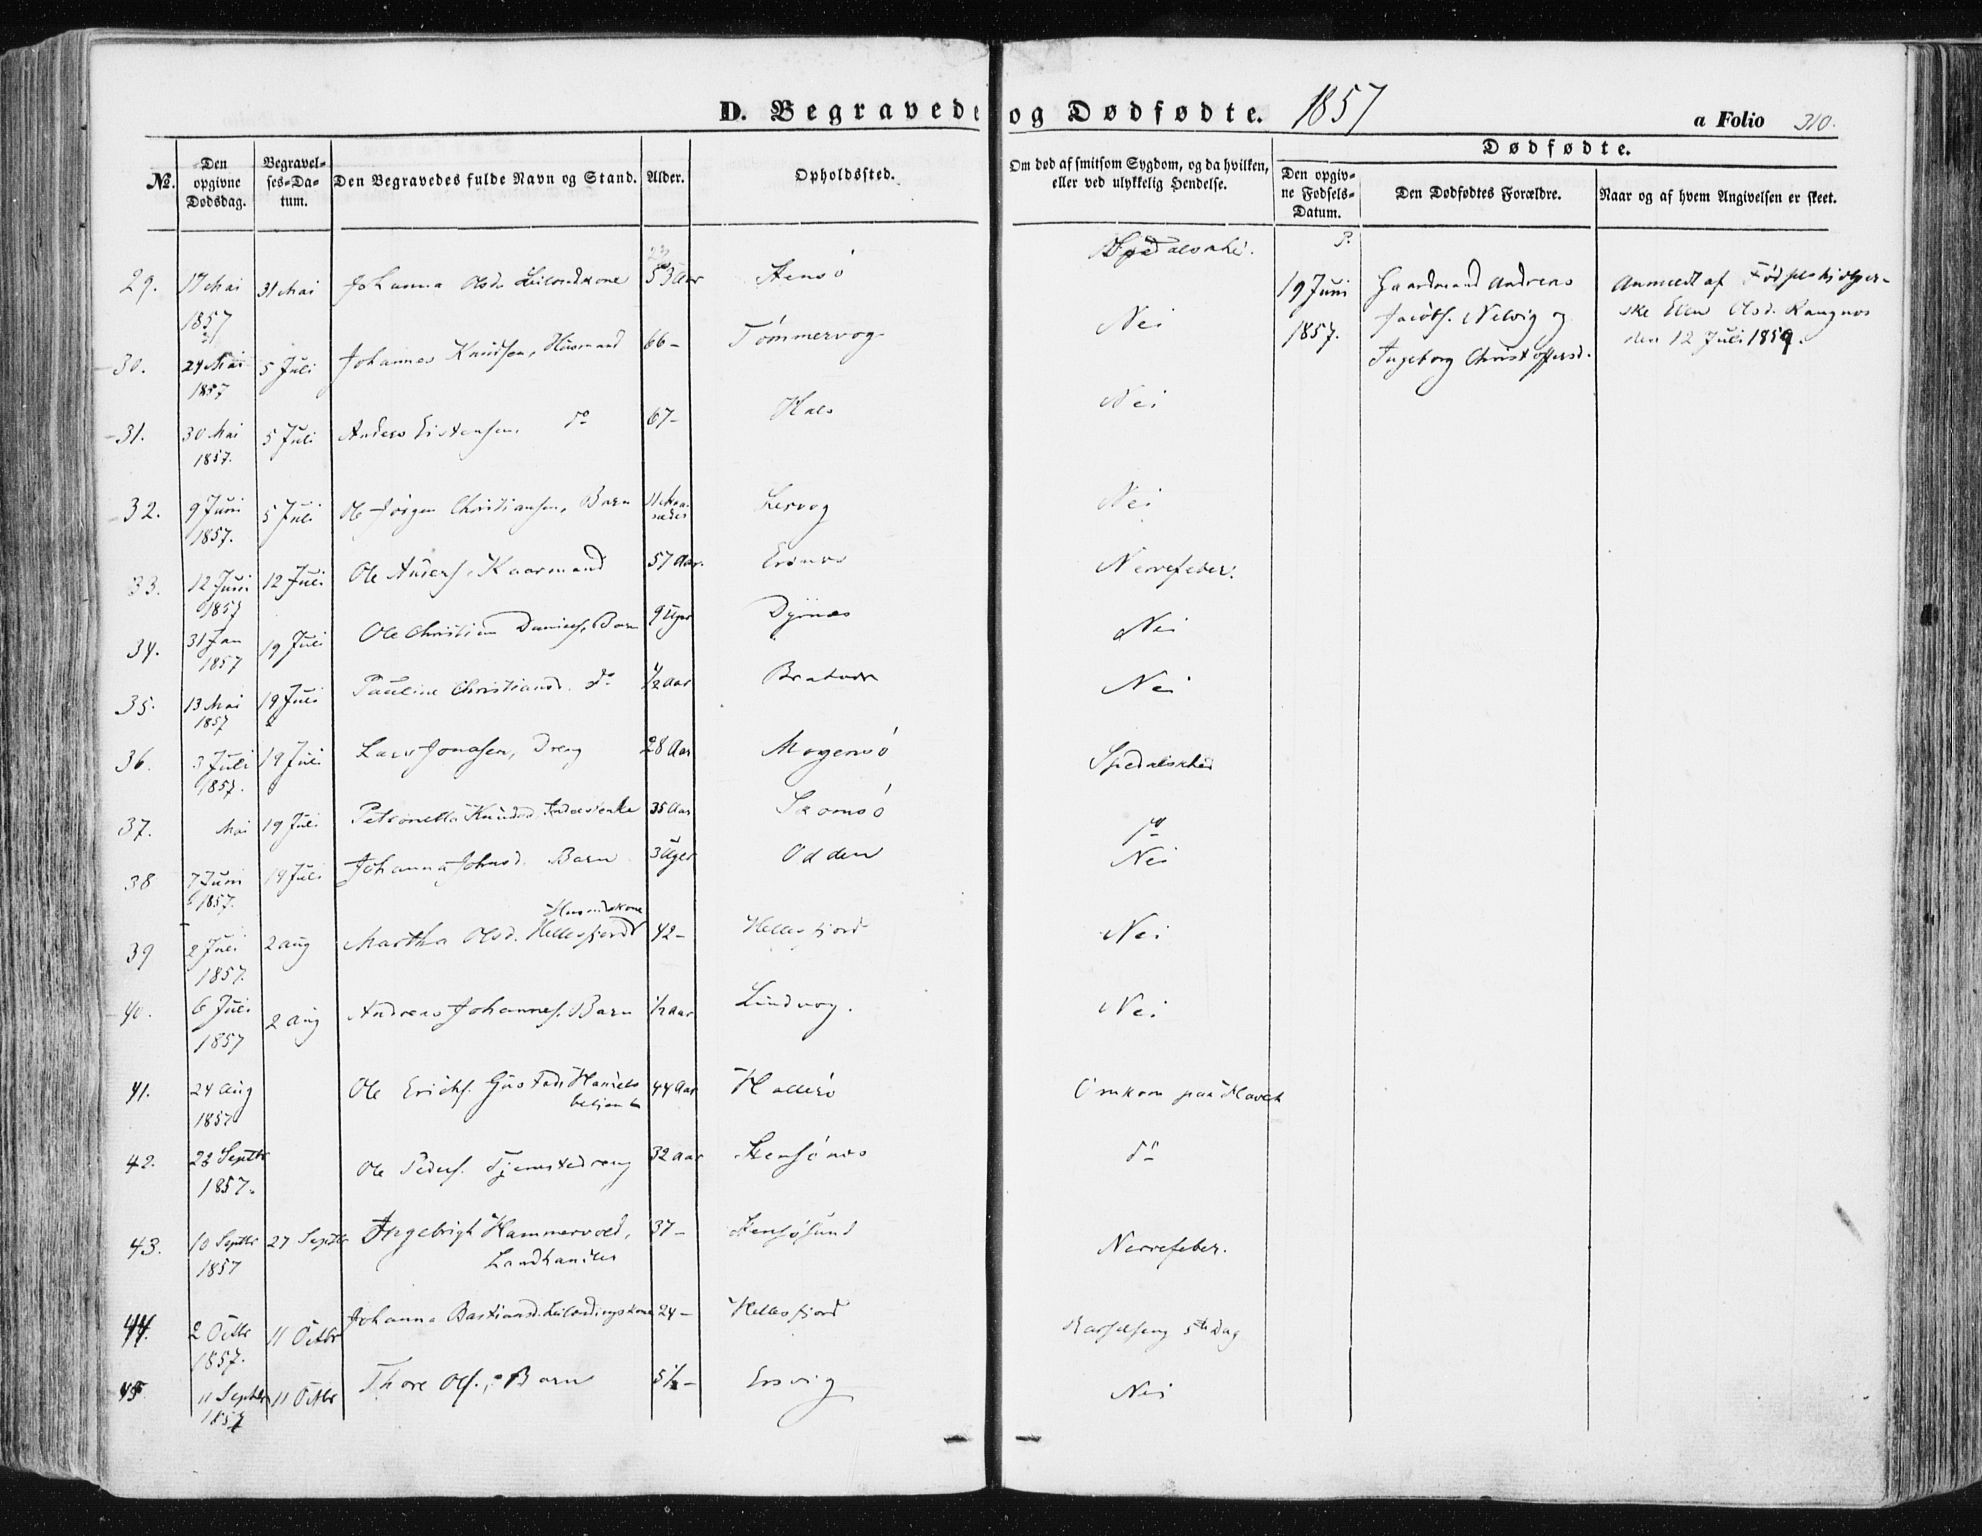 D. Begravede og Dødfødte. 1857 a Folio 310.
No. Den opgivne Dødsdag. Begravelses-Datum. Den Begravedes fulde Navn og Stand. Alder. Opholdssted. Om død af smitsom Sygdom, og da hvilken, eller ved ulykkelig Hendelse.
Dødfødte.
Den opgivne Fødsels-Datum. Den Dødfødtes Forældre. Naar og af hvem Angivelsen er skeet.
29. 17 Mai 1857 31 Mai Johanna Olsd. 53 Aar Spedalskhd.
30. 24 Mai 1857 5 Juli Johannes Knudsen, Husmand 66 – Tømmervog Nei
31. 30 Mai 1857. 5 Juli Anders Eistensen, do 67 – Hals Nei
32. 9 Juni 1857. 5 Juli Ole Jørgen Christiansen, Barn 11 Maaneder Lervog Nei
33. 12 Juni 1857 12 Juli Ole Anders. Kaarmand 57 Aar. Nervefeber.
34. 31 Jan 1857 19 Juli Ole Christian Daniels. Barn 9 Uger Dyrnæs Nei
35. 13 Mai 1857 19 Juli Pauline Christiansd. do 1/2 Aar Bratvær Nei
36. 3 Juli 1857. 19 Juli Lars Jonasen, Dreng 28 Aar Spedalskhed
37. Mai 19 Juli Petronella Knudsd. 35 Aar do
38 7 Juni 1857. 19 Juli Johanna Johnsd. Barn 3 Uger Odden Nei
39 2 Juli 1857. 2 Aug Martha Olsd. Hellesfjord Husmdskone 42 – Hellesfjord Nei
40. 6 Juli 1857 2 Aug Andreas Johannes. Barn 1/2 Aar Lindvog. Nei
41. 24 Aug 1857 Ole Erichs. Gustad Handels betjent 44 Aar Omkom paa Havet
42. 23 Septbr 1857. Ole Peders. Tjenestedreng 32 Aar do
43. 10 Septbr 1857 27 Septbr Ingebrigt Hammervold, Landhandler 37 – Nervefeber.
44. 2 Octbr 1857. 11 Octbr Johanna Bastiansd. Leilændingskone 24 – Hellesfjord Barselseng 5te Dag
45 11 Septbr 1857 11 Octbr Thore Ols., Barn 5 1/2 – Ersvig Nei
19 Juni 1857. Gaardmand Andreas Jacobs. Nelvig og Ingeborg Christoffersd.
Anmeldt af Fødselshjelperske Ellen Olsd. den 12 Juli 1857.